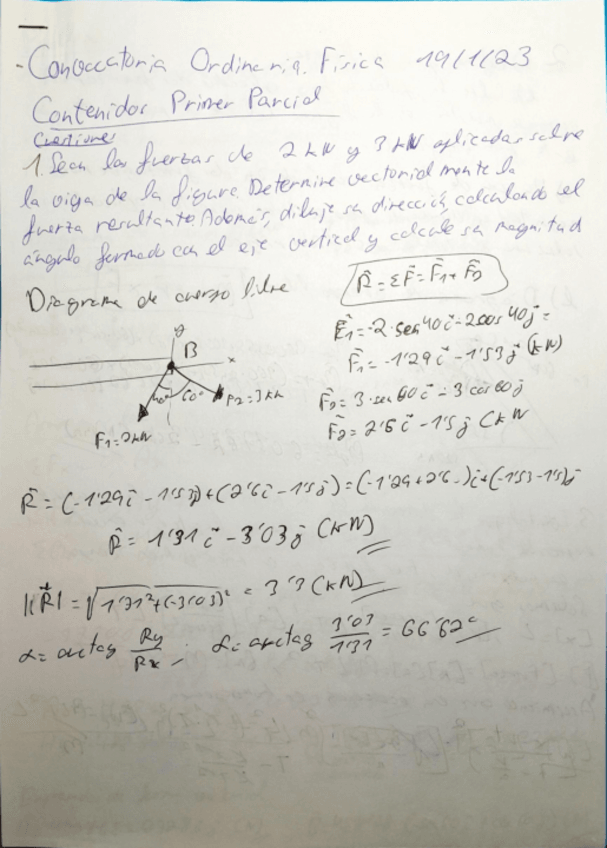 - Convocatoria Ordinaria. Física 19/1/23
Contenidos Primer Parcial
Cuestiones
1. Sean las fuerzas de 2 kN y 3 kN aplicadas sobre
la viga de la figura. Determine vectorialmente la
fuerza resultante. Además, dibuje su dirección, calculando el
ángulo formado con el eje vertical y calcule su magnitud
Diagrama de cuerpo libre
R⃗ = Σ F⃗ = F⃗1 + F⃗2
F⃗1 = -2·sen40 i⃗ - 2cos40 j⃗ =
F⃗1 = -1'29 i⃗ - 1'53 j⃗ (kN)
F⃗2 = 3·sen60 i⃗ - 3 cos60 j⃗
F⃗2 = 2'6 i⃗ - 1'5 j⃗ (kN
y
B
x
40° 60°
F2=3kN
F1=2kN
R⃗ = (-1'29 i⃗ - 1'53 j⃗) + (2'6 i⃗ - 1'5 j⃗) = (-1'29+2'6) i⃗ + (-1'53-1'5) j⃗
R⃗ = 1'31 i⃗ - 3'03 j⃗ (kN)
||R⃗| = √1'31²+(-3'03)² = 3'3 (kN)
α = arctag Ry/Rx ; α = arctag 3'03/1'31 = 66'62°